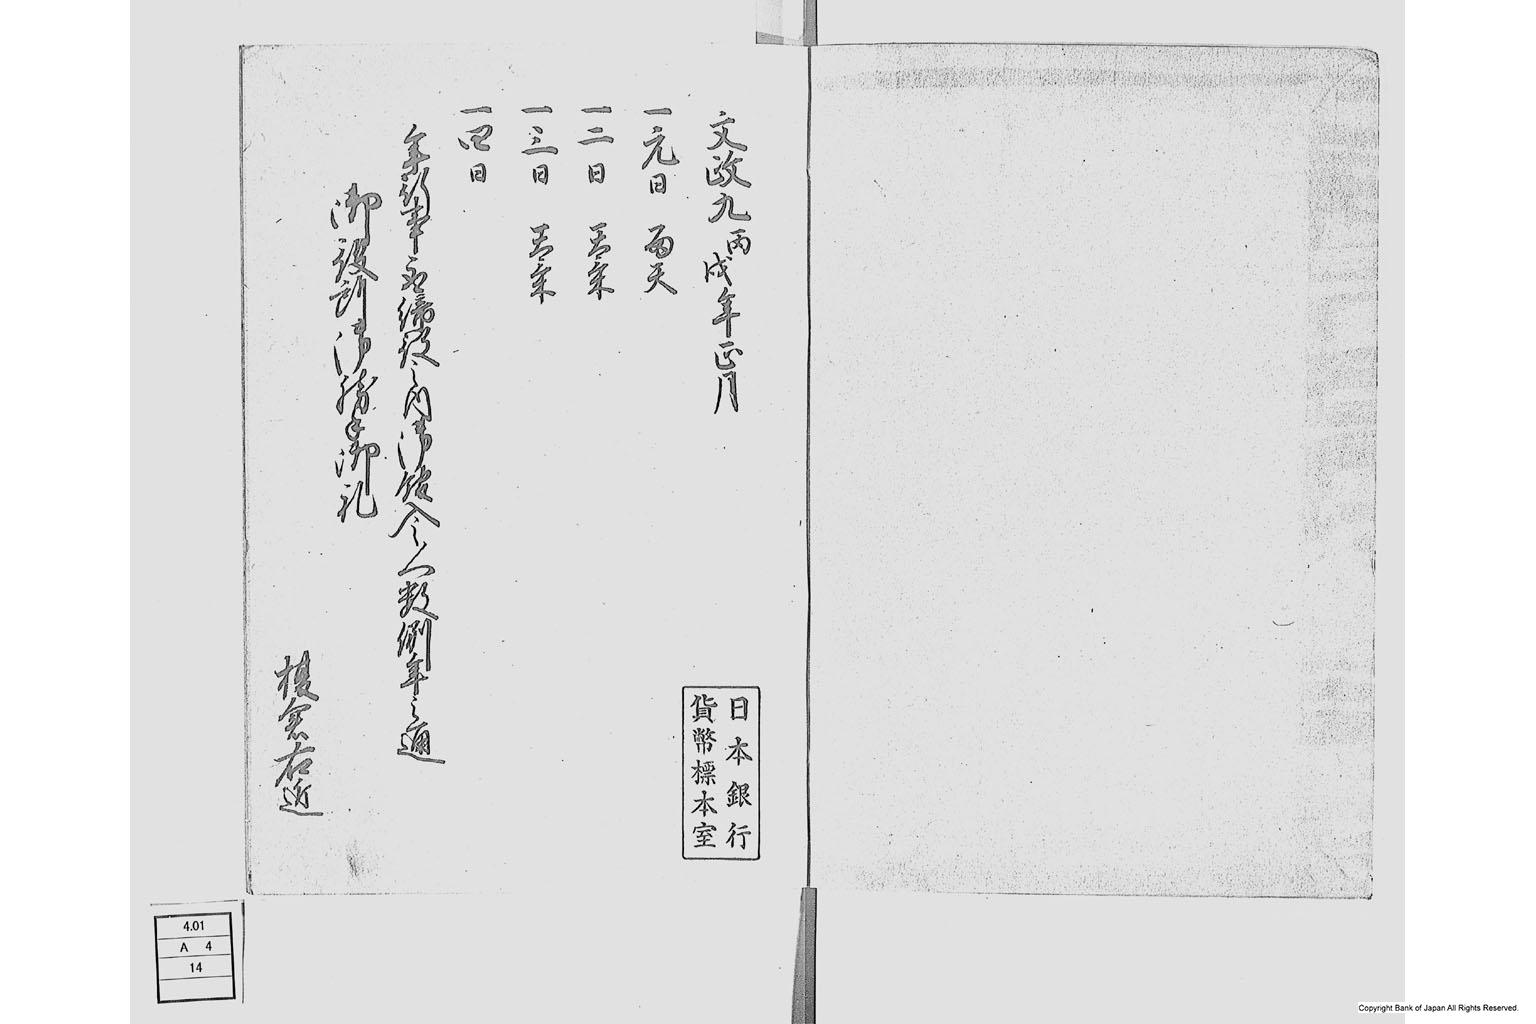 文政九丙戌年正月
一元日 雨天
一二日 天気
一三日 天気
一四日
年頭年寄締役之内御館入之人数例年之通
御役所御勝手御礼
榎倉右近
日本銀行
貨幣標本室
4.01
A 4
14
Copyright Bank of Japan All Rights Reserved.